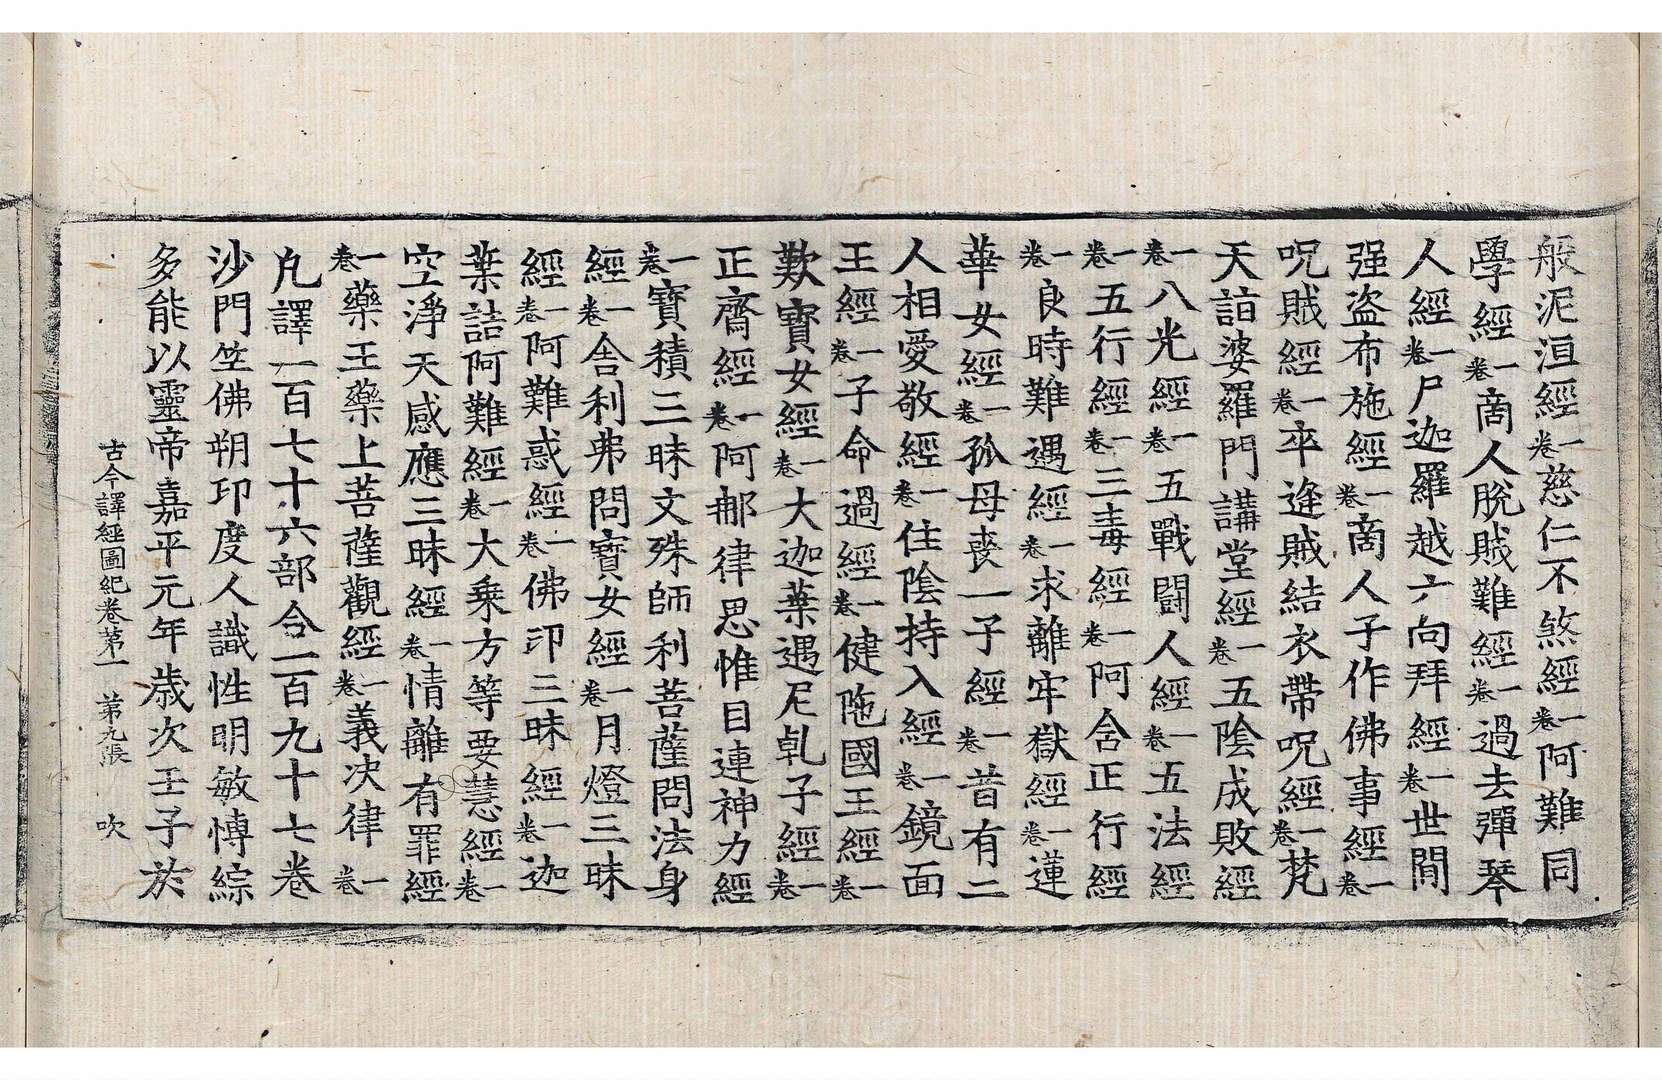 般泥洹經一卷慈仁不煞經一卷阿難同
學經一卷商人脫賊難經一卷過去彈琴
人經一卷尸迦羅越六向拜經一卷世間
强盗布施經一卷商人子作佛事經一卷
呪賊經一卷卒逢賊結衣帶呪經一卷梵
天詣婆羅門講堂經一卷五陰成敗經
一卷八光經一卷五戰鬪人經一卷五法經
一卷五行經一卷三毒經一卷阿含正行經
一卷良時難遇經一卷求離牢獄經一卷蓮
華女經一卷孤母喪一子經一卷昔有二
人相愛敬經一卷住陰持入經一卷鏡面
王經一卷子命過經一卷健陁國王經一卷
歎寶女經一卷大迦葉遇尼乹子經一卷
正齋經一卷阿那律思惟目連神力經
一卷寶積三昧文殊師利菩薩問法身
經一卷舍利弗問寶女經一卷月燈三昧
經一卷阿難惑經一卷佛印三昧經一卷迦
葉詰阿難經一卷大乗方等要慧經一卷
空淨天感應三昧經一卷情離有罪經
一卷藥王藥上菩薩觀經一卷義决律一卷
凡譯一百七十六部合一百九十七卷
沙門竺佛朔印度人識性明敏博綜
多能以靈帝嘉平元年歲次壬子於
古今譯經圖紀卷苐一　苐九張　吹